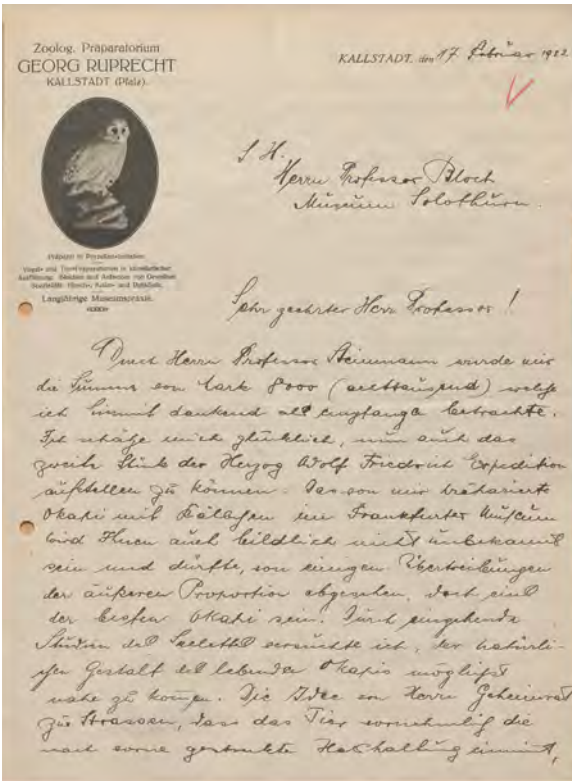 Zoolog. Präparatorium
GEORG RUPRECHT
KALLSTADT (Pfalz).
KALLSTADT, den 17 Februar 1922
S. H.
Herrn Professor Bloch
Museum Solothurn.
Langjährige Museumspraxis.
Sehr geehrter Herr Professor!
Durch Herrn Professor Steinmann wurde mir
die Summe von Mark 8000 (achttausend) welche
ich hiermit dankend als empfangen betrachte.
Ich schätze mich glücklich, nun auch das
zweite Stück der Herzog Adolf Friedrich Expedition
aufstellen zu können. Das von mir präparierte
Okapi mit Kälbchen im Frankfurter Museum
wird Ihnen auch bildlich nicht unbekannt
sein und dürfte, von einigen Übertreibungen
der äußeren Proportion abgesehen, doch eins
der besten Okapi sein. Durch eingehende
Studien des Skeletts versuchte ich, der natürli-
chen Gestalt des lebenden Okapis möglichst
nahe zu kommen. Die Idee von Herrn Geheimrat
zur Strassen, dass das Tier vornehmlich die
nach vorne gestreckte Halshaltung einnimmt,